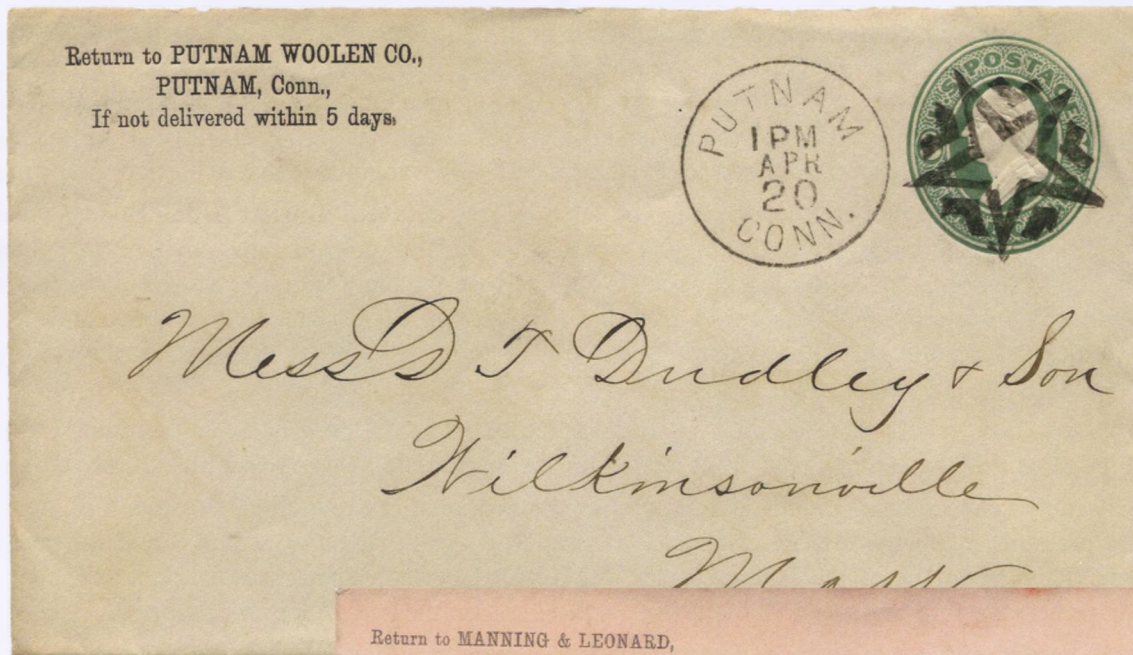 Return to PUTNAM WOOLEN CO.,
PUTNAM, Conn.,
If not delivered within 5 days.
PUTNAM
1 PM
APR
20
CONN.
U.S. POSTAGE
Mess D T Dudley & Son
Wilkinsonville
Mass
Return to MANNING & LEONARD,